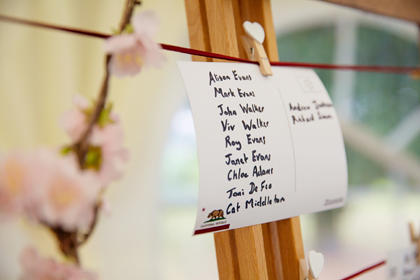 Alison Evans
Mark Evans
John Walker
Viv Walker
Roy Evans
Janet Evans
Chloe Adams
Toni De Fco
Cat Middleton
Andrew
Richard
CALIFORNIA REPUBLIC